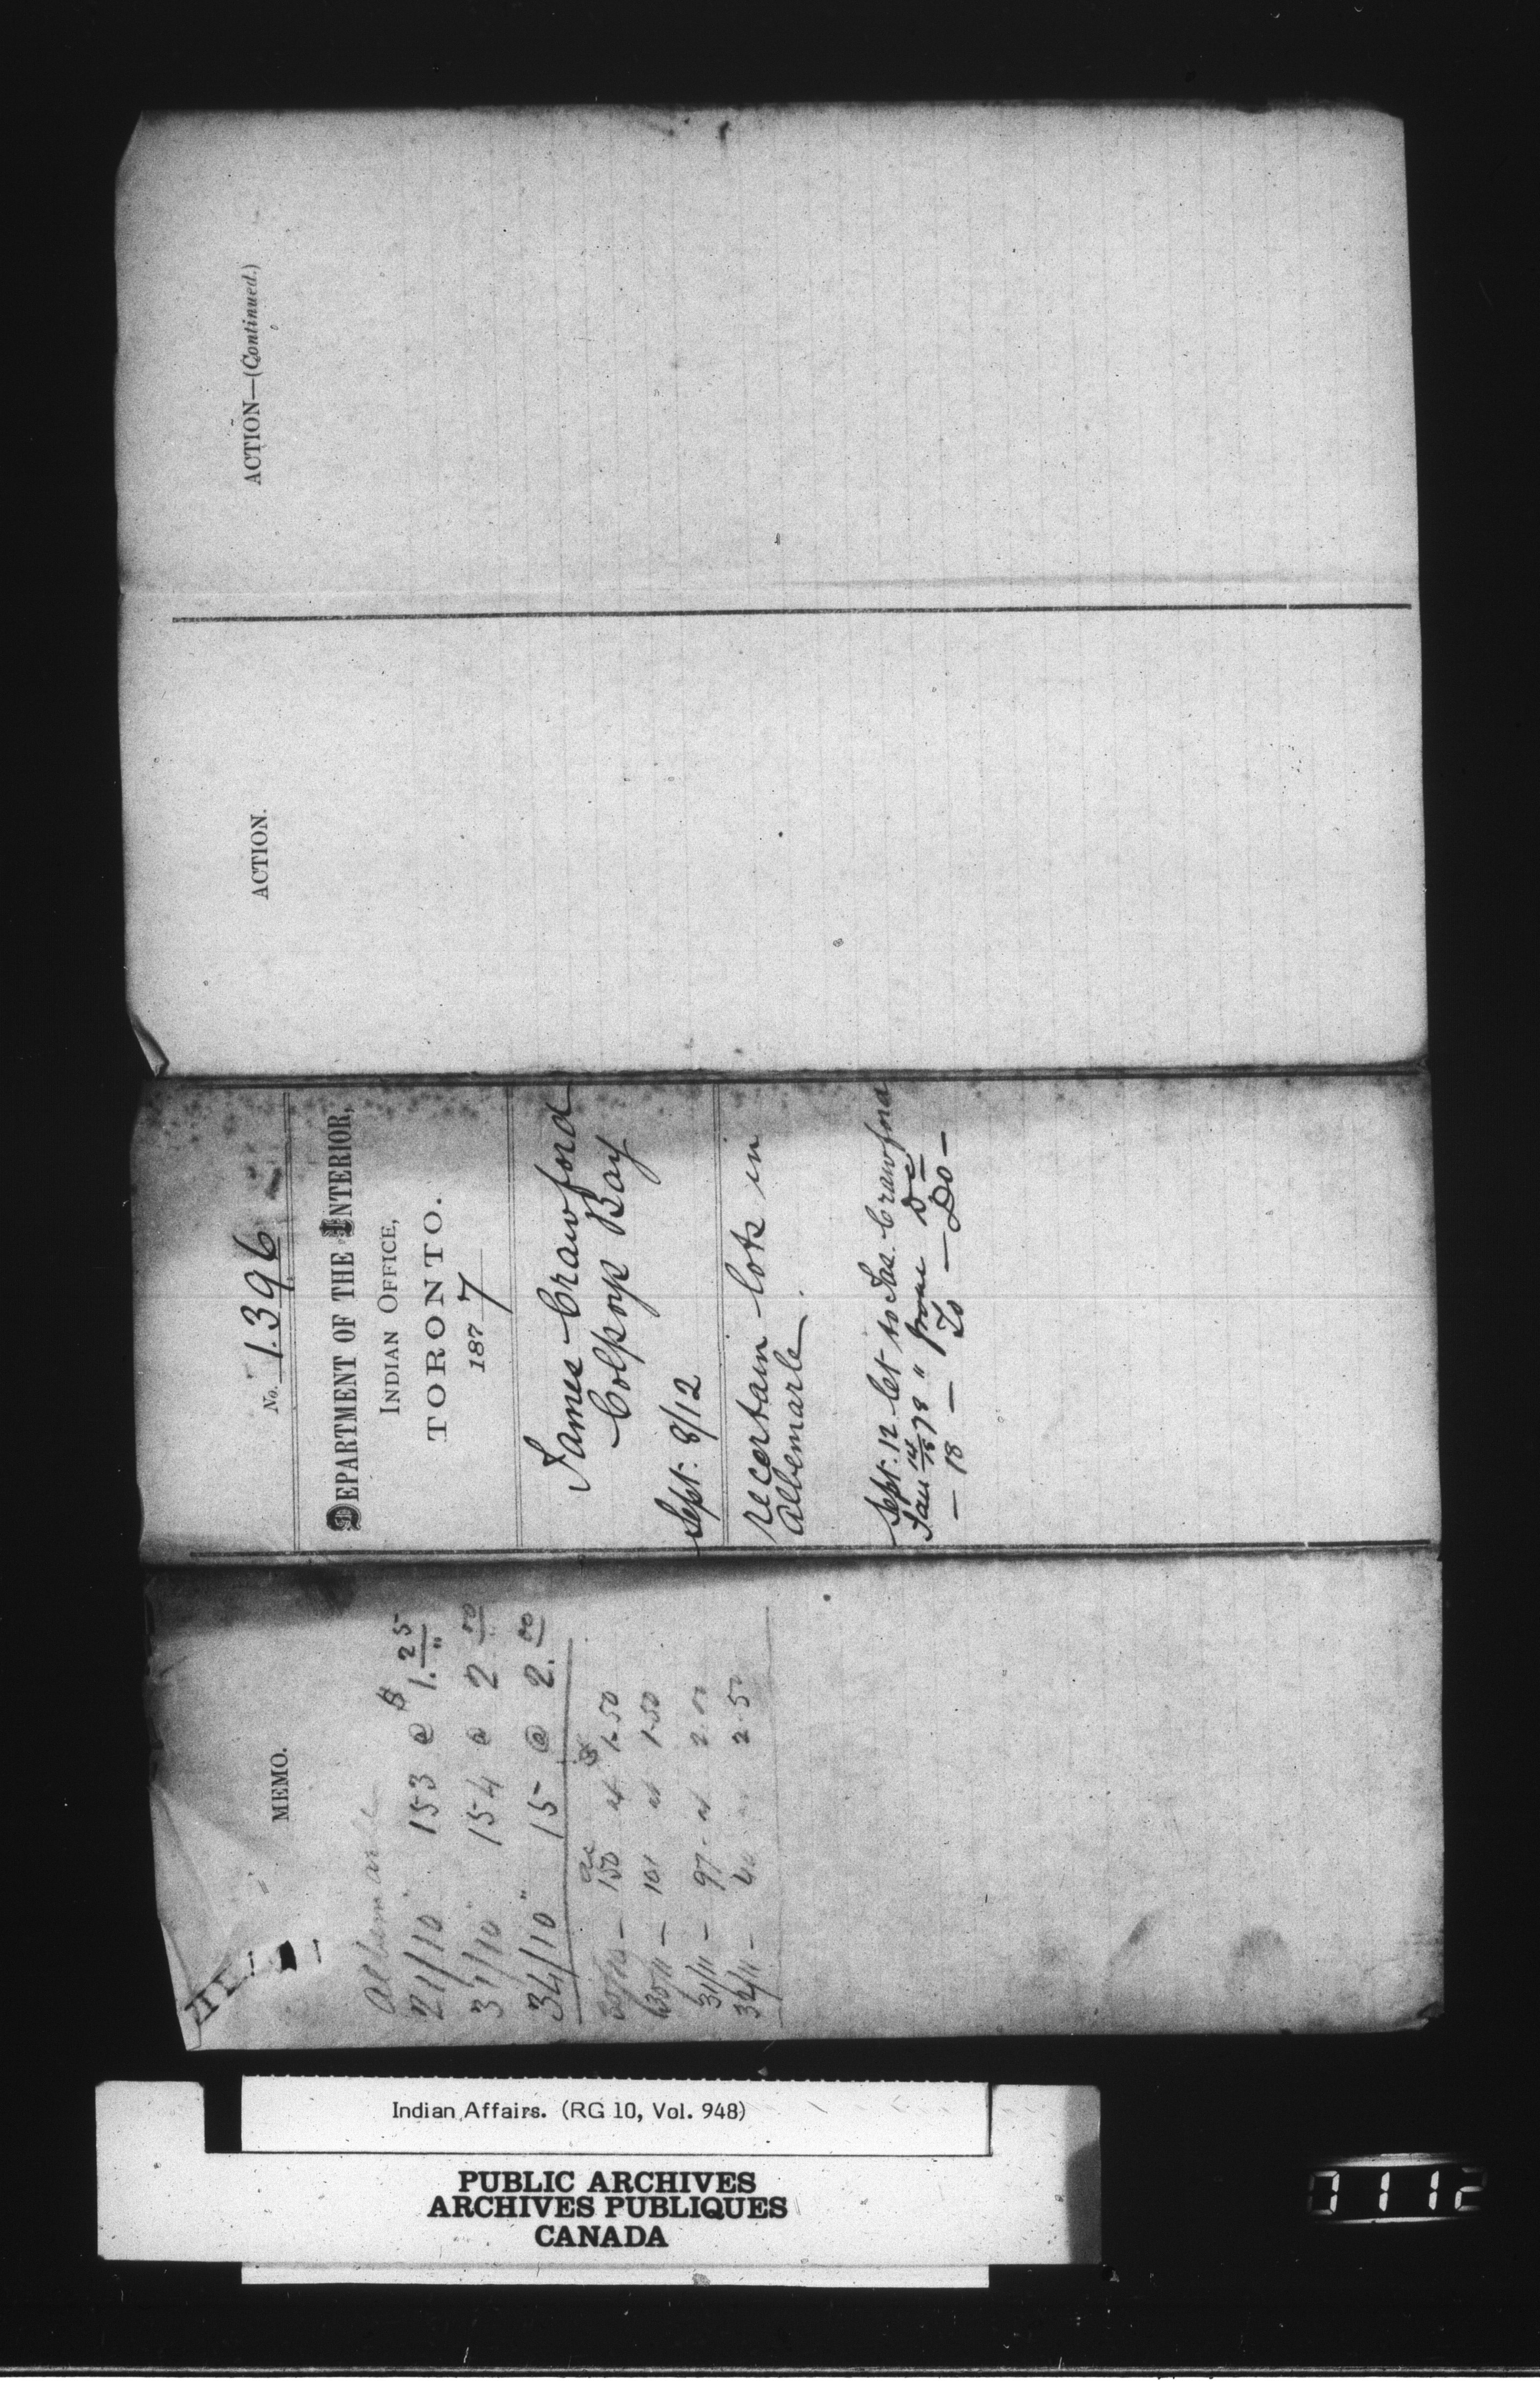 MEMO.
Albemarle
21/10 153 @ $1.25
31/10" 154 @ 2.00
34/10" 15 @ 2.00
ac $
150 at 1.50
30/11 — 101 at 1.50
31/11 — 97 - at 2.00
32/11 — 2.50
No. 1396
DEPARTMENT OF THE INTERIOR,
INDIAN OFFICE,
TORONTO.
1877
James Crawford
Colpoys Bay
Sept. 8/12
re certain lots in
Albemarle.
Sept. 12 let to Jas. Crawford
Jan 14/15 78 " from Do
— 18 — To — Do —
ACTION.
ACTION—(Continued.)
Indian Affairs. (RG 10, Vol. 948)
PUBLIC ARCHIVES
ARCHIVES PUBLIQUES
CANADA
0112